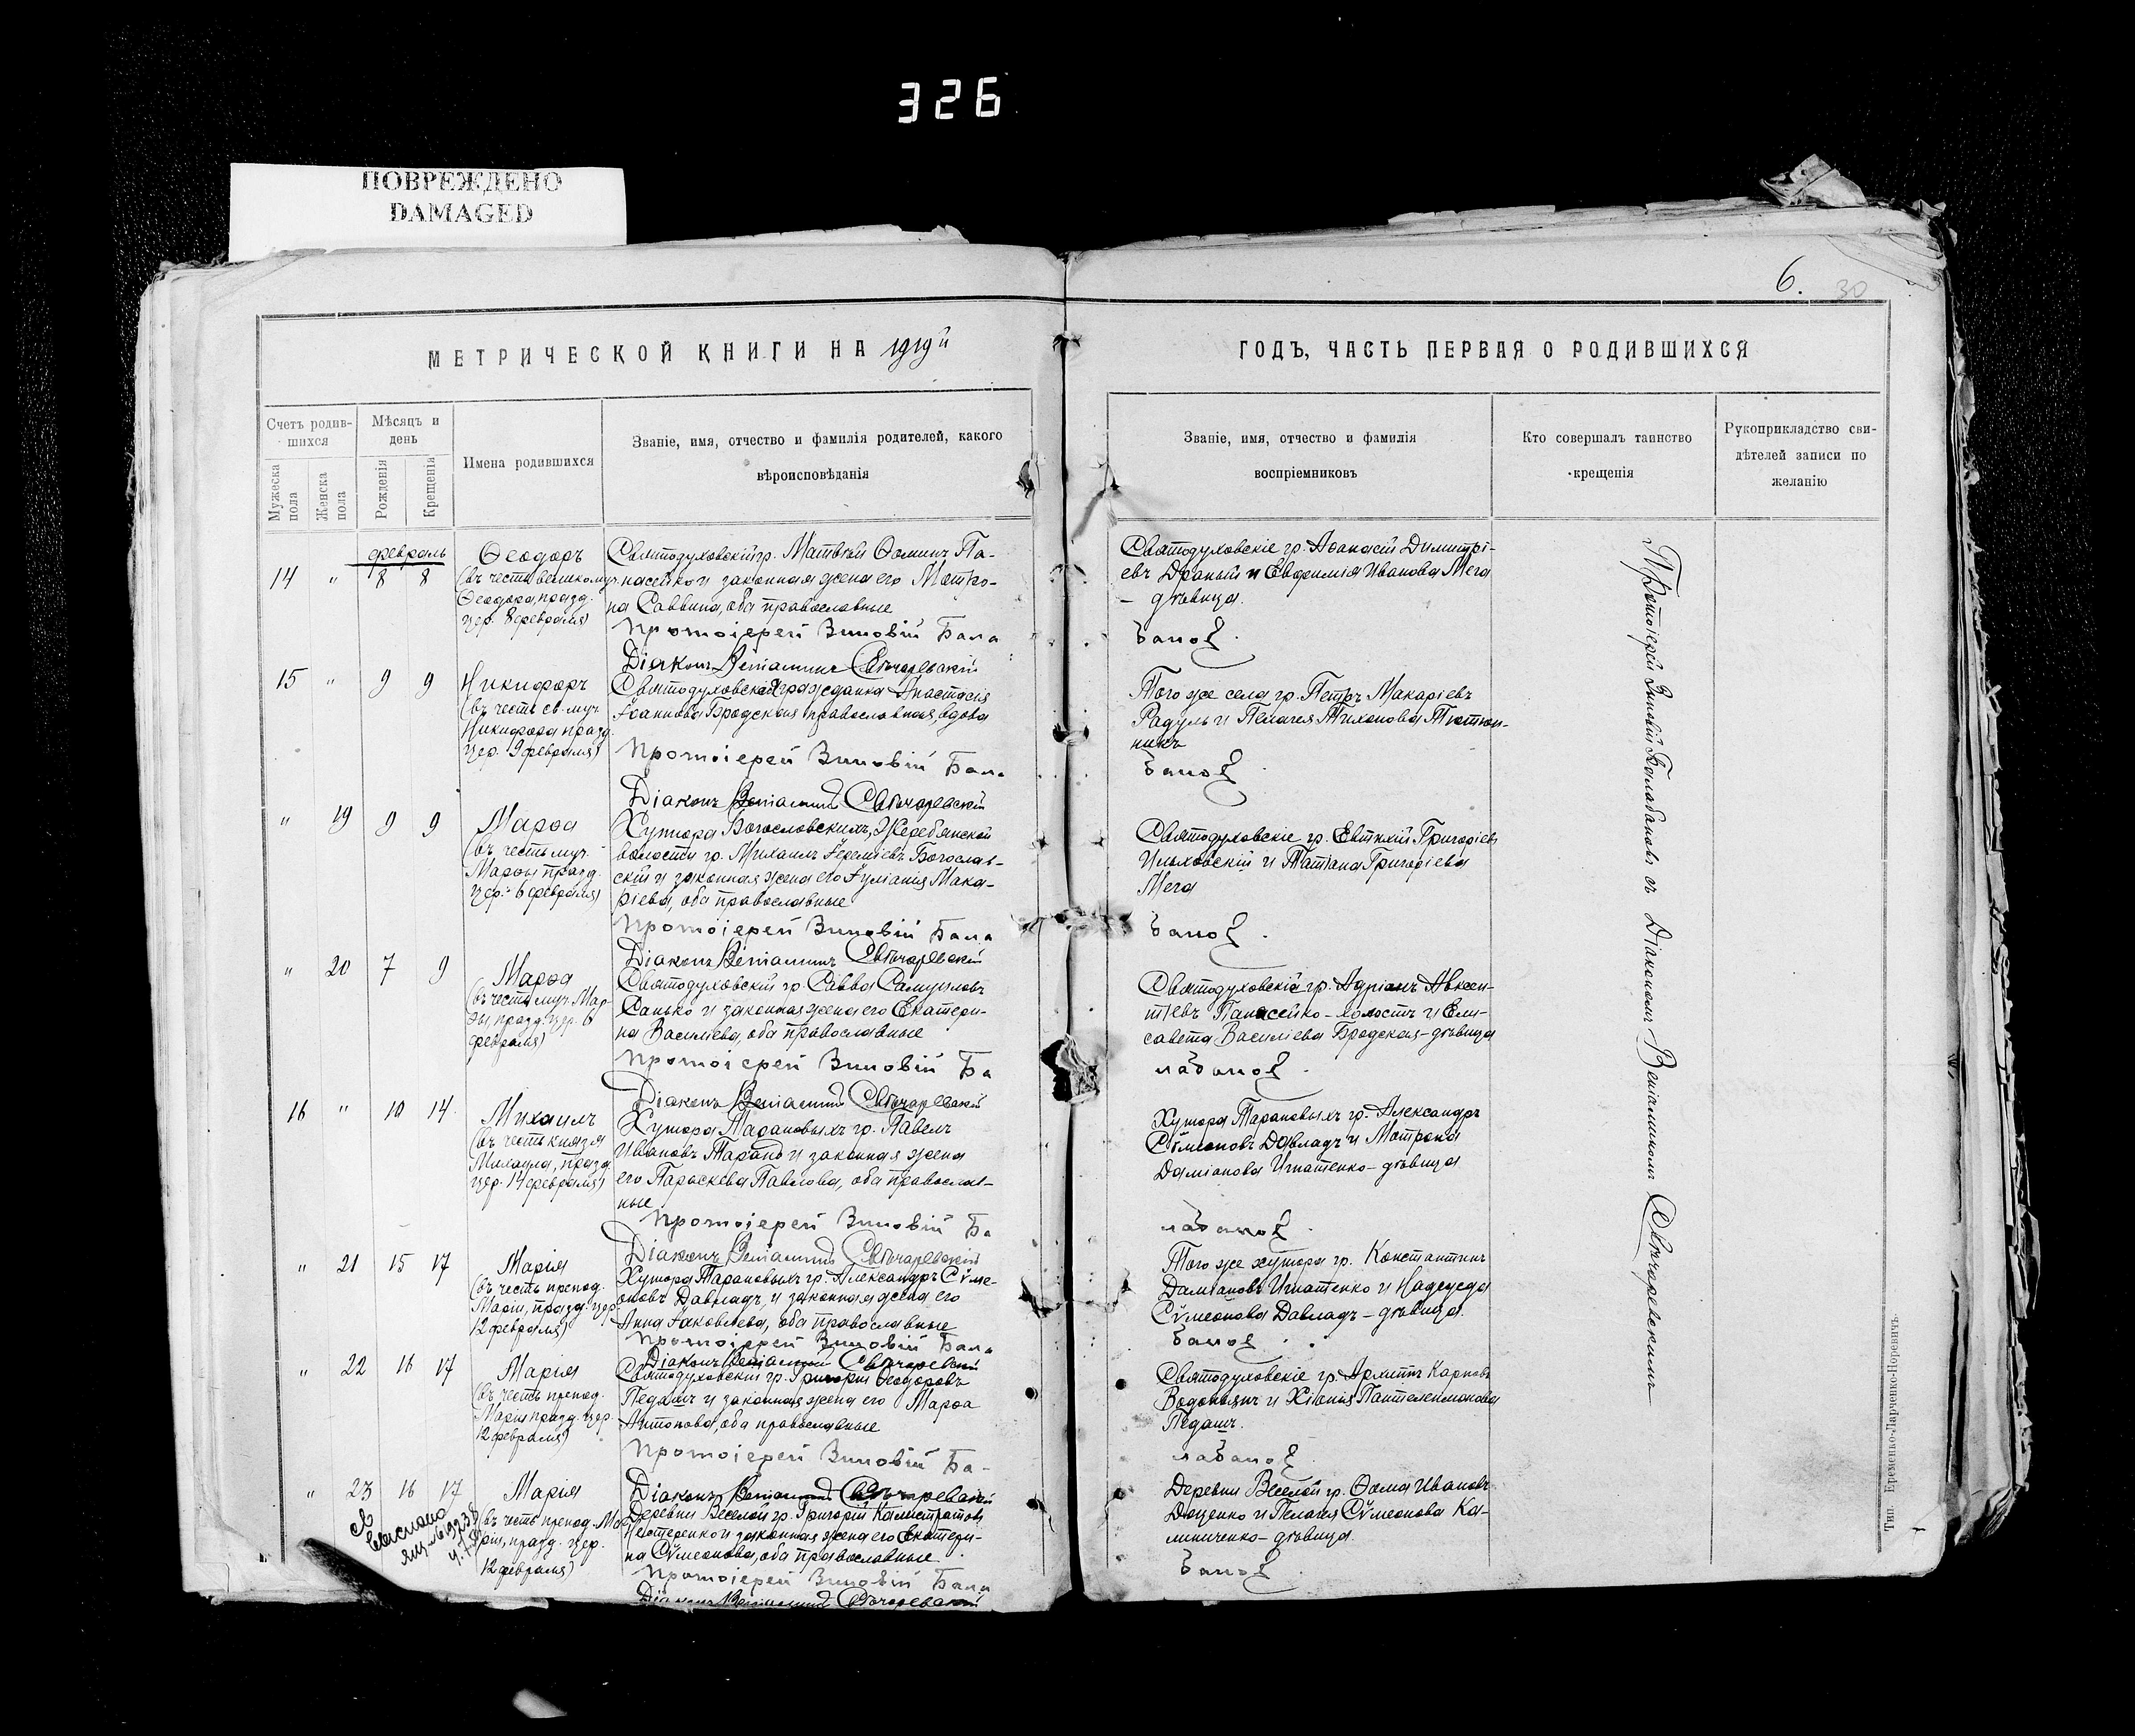 326
ПОВРЕЖДЕНО
DAMAGED
6. 30
МЕТРИЧЕСКОЙ КНИГИ НА 1919й
ГОДЪ, ЧАСТЬ ПЕРВАЯ О РОДИВШИХСЯ
Счетъ родив-
шихся
Мужеска пола
Женска пола
Мѣсяцъ и
день
Рожденія
Крещенія
Имена родившихся
Званіе, имя, отчество и фамилія родителей, какого
вѣроисповѣданія
Званіе, имя, отчество и фамилія
воспріемниковъ
Кто совершалъ таинство
крещенія
Рукоприкладство сви-
дѣтелей записи по
желанію
февраль
14 " 8 8
Ѳеодоръ
(въ честь великомуч.
Ѳеодора, празд.
цер. 8 февраля)
Святодуховскій гр. Матвѣй Ѳоминъ Па-
насейко и законная жена его Матро-
на Саввина, оба православные
Протоіерей Зиновій Бала
Діаконъ Веніаминъ Свѣчаревскій
Святодуховскіе гр. Аѳанасій Димитрі-
евъ Драный и Евфимія Иванова Мега
- дѣвица.
бановъ.
15 " 9 9
Никифоръ
(въ честь св. муч.
Никифора празд.
цер. 9 февраля)
Святодуховская гражданка Анастасія
Іоаннова Бродская православная, вдова
Протоіерей Зиновій Бала
Діаконъ Веніаминъ Свѣчаревскій
Того же села гр. Петръ Макаріевъ
Радуль и Пелагея Тихонова Тютюн-
никъ
бановъ.
" 19 9 9
Марѳа
(въ честь муч.
Марѳы празд.
цер. 6 февраля)
Хутора Богословскихъ, Жеребянской
волости гр. Михаилъ Іереміевъ Богослов-
скій и законная жена его Іуліанія Мака-
ріева, оба православные
Протоіерей Зиновій Бала
Діаконъ Веніаминъ Свѣчаревскій
Святодуховскіе гр. Евтихій Григоріевъ
Ильховскій и Татіана Григоріева
Мега
бановъ.
" 20 7 9
Марѳа
(въ честь муч. Мар-
ѳы, празд. цер. 6
февраля)
Святодуховскій гр. Савва Самуиловъ
Санько и законная жена его Екатери-
на Василіева, оба православные
Протоіерей Зиновій Ба
Діаконъ Веніаминъ Свѣчаревскій
Святодуховскіе гр. Адріанъ Авксен-
тіевъ Панасейко - холостъ и Ели-
савета Василіева Бродская - дѣвица
лабановъ.
16 " 10 14
Михаилъ
(въ честь князя
Михаила, празд.
цер. 14 февраля)
Хутора Тарановыхъ гр. Павелъ
Ивановъ Таранъ и законная жена
его Параскева Павлова, оба православ-
ные
Протоіерей Зиновій Ба
Діаконъ Веніаминъ Свѣчаревскій
Хутора Тарановыхъ гр. Александръ
Сѵмеоновъ Давладъ и Матрона
Даміанова Игнатенко - дѣвица
лабановъ.
" 21 15 17
Марія
(въ честь препод.
Маріи, празд. цер.
12 февраля)
Хутора Тарановыхъ гр. Александръ Сѵме-
оновъ Давладъ, и законная жена его
Анна Іаковлева, оба православные
Протоіерей Зиновій Бала
Діаконъ Веніаминъ Свѣчаревскій
Того же хутора гр. Константинъ
Даміановъ Игнатенко и Надежда
Сѵмеонова Давладъ - дѣвица.
бановъ.
" 22 16 17
Марія
(въ честь препод.
Маріи празд. цер.
12 февраля)
Святодуховскій гр. Григорій Ѳеодоровъ
Педашъ и законная жена его Марѳа
Антонова, оба православные
Протоіерей Зиновій Ба-
Діаконъ Веніаминъ Свѣчаревскій
Святодуховскіе гр. Архипъ Карповъ
Водопьянъ и Хіонія Пантелеимонова
Педашъ.
лабановъ.
" 23 16 17
Марія
(въ честь препод. Ма-
ріи, празд. цер.
12 февраля)
Деревни Веселой гр. Григорій Каллистратовъ
Нестеренко и законная жена его Екатери-
на Сѵмеонова, оба православные.
Протоіерей Зиновій Бала
Діаконъ Веніаминъ Свѣчаревскій
Деревни Веселой гр. Ѳома Ивановъ
Доценко и Пелагія Сѵмеонова Ка-
линиченко - дѣвица.
бановъ.
Протоіерей Зиновій Балабановъ съ Діакономъ Веніаминомъ Свѣчаревскимъ
Тип. Еременко-Ларченко-Норевичъ.